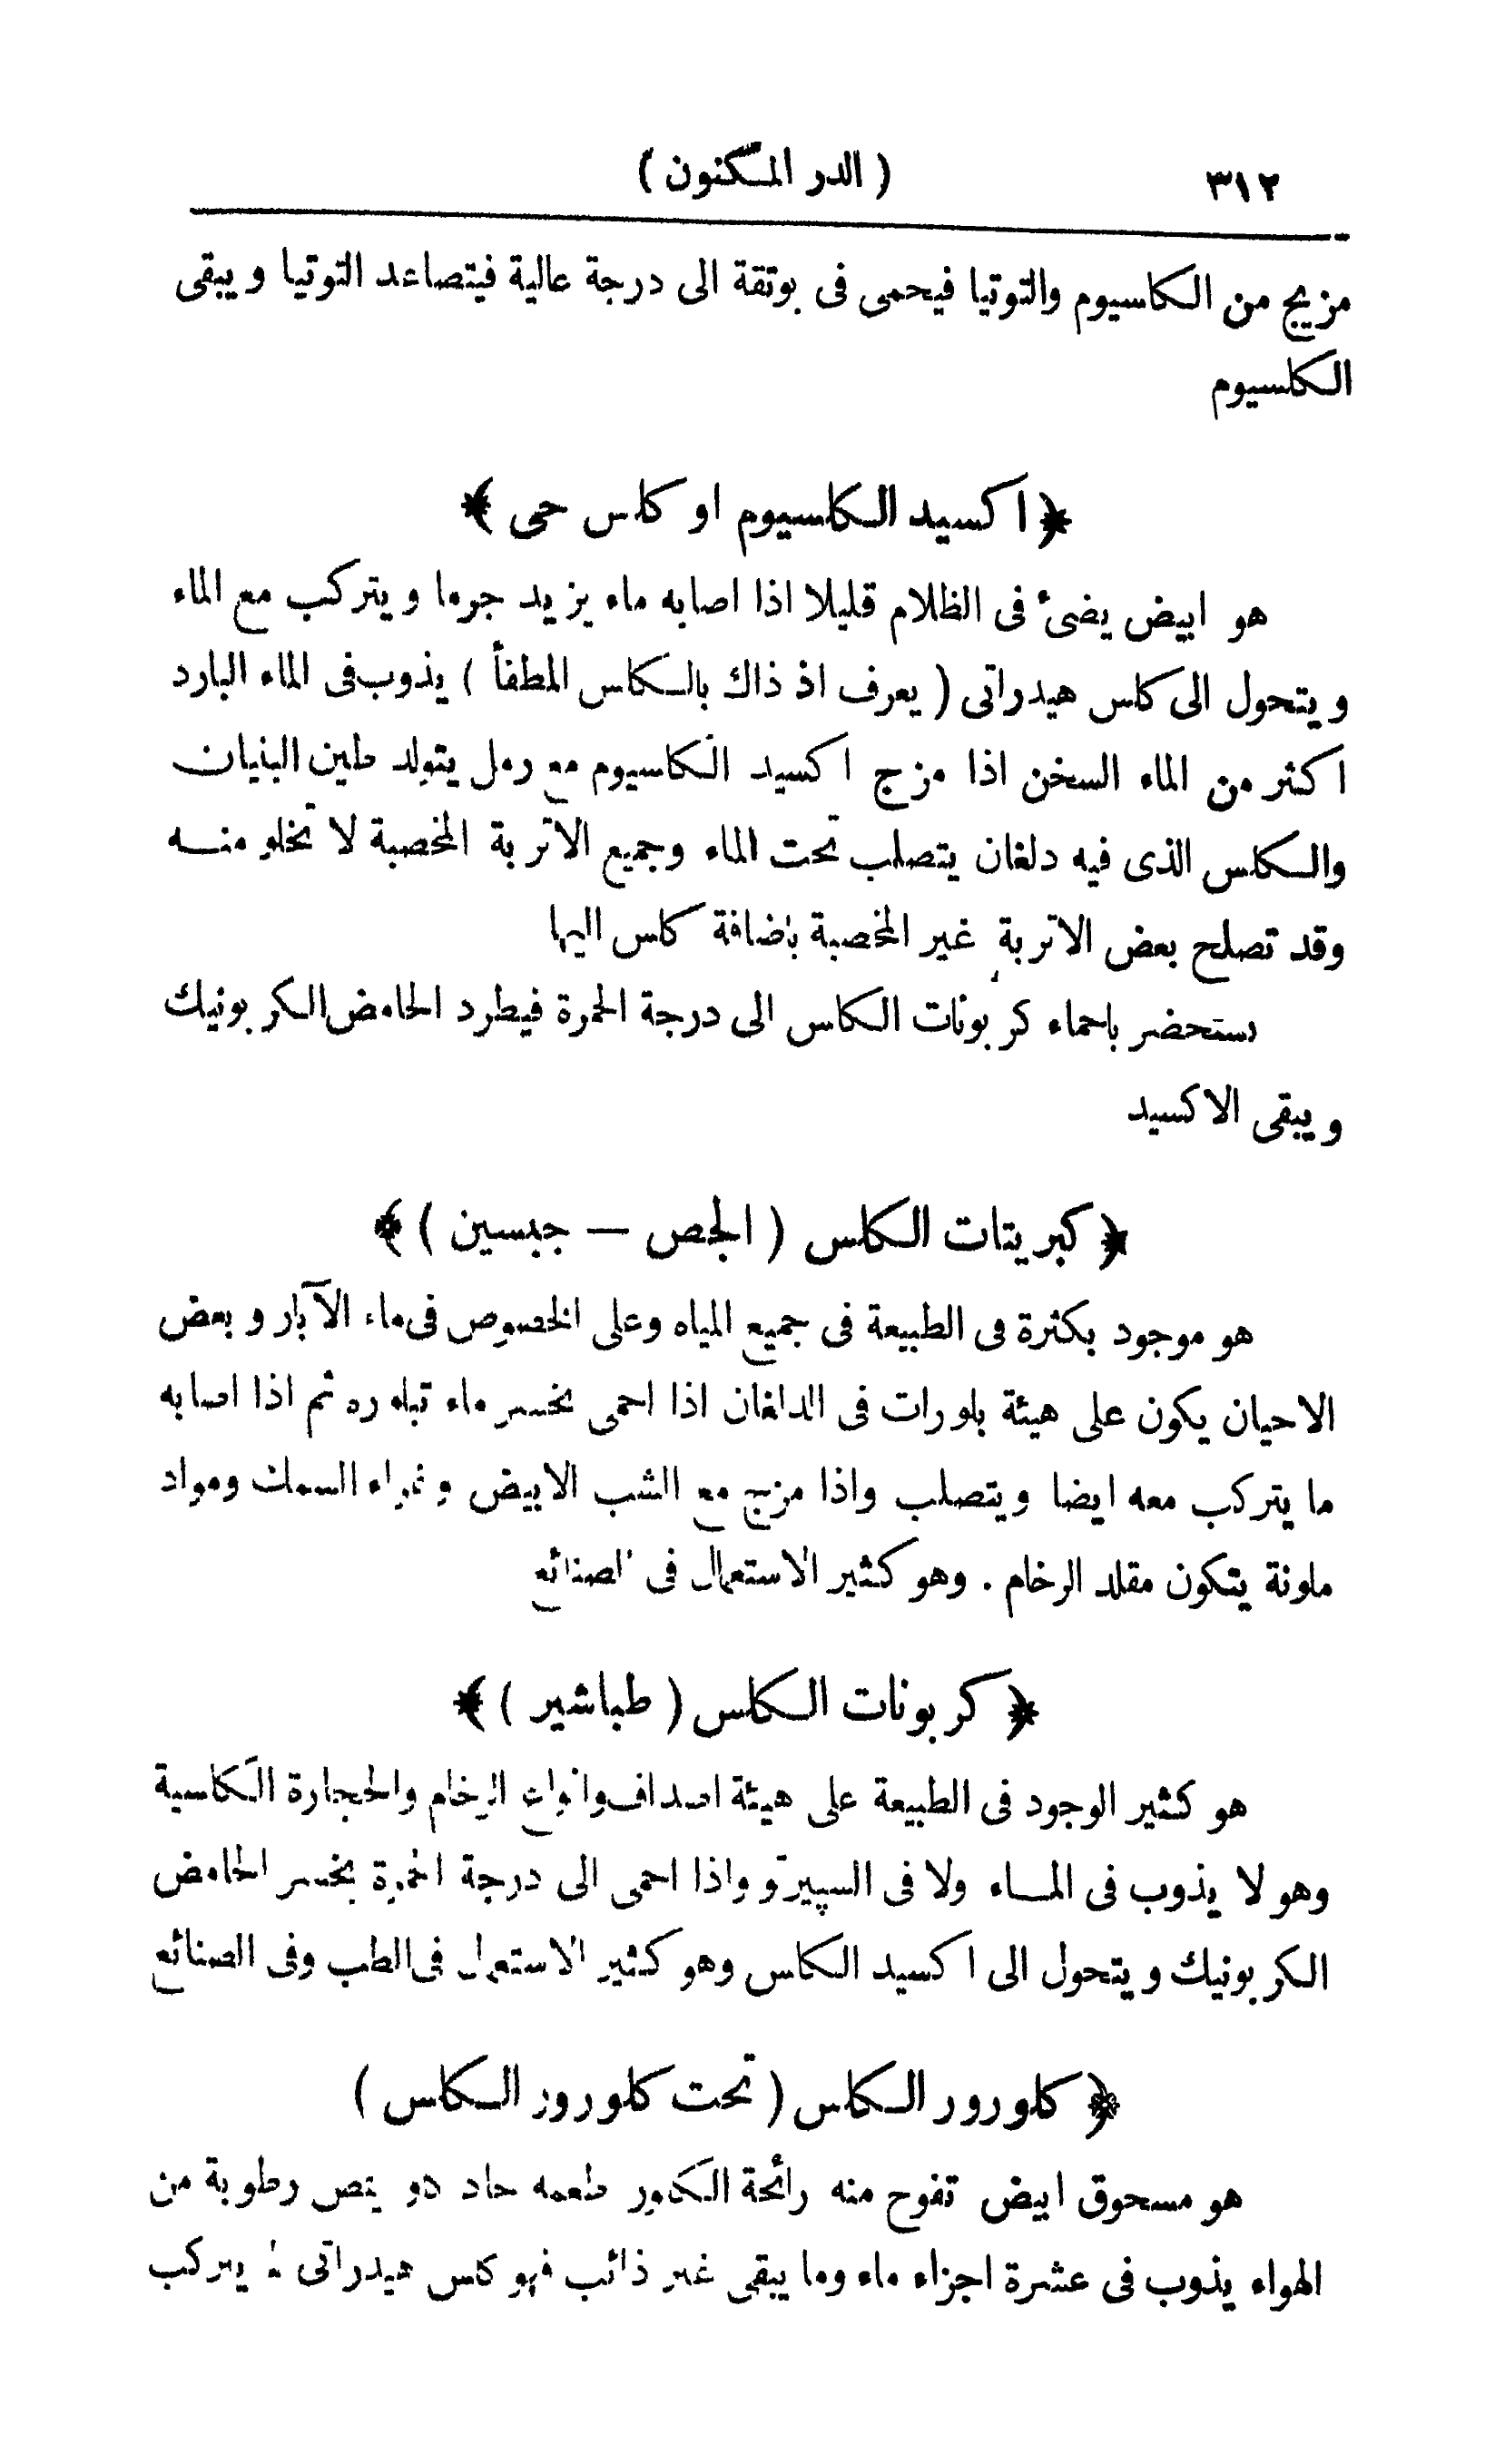 ٣١٢
( الدر المكنون )
مزيج من الكلسيوم والتوتيا فيحمى فى بوتقة الى درجة عالية فيتصاعد التوتيا ويبقى
الكلسيوم
﴿ اكسيد الكلسيوم او كلس حى ﴾
هو ابيض يضئ فى الظلام قليلا اذا اصابه ماء يزيد جرما ويتركب مع الماء
ويتحول الى كلس هيدراتى ( يعرف اذ ذاك بالكلس المطفأ ) يذوب فى الماء البارد
اكثر من الماء السخن اذا مزج اكسيد الكلسيوم مع رمل يتولد طين البنيان
والكلس الذى فيه دلغان يتصلب تحت الماء وجميع الاتربة المخصبة لا تخلو منه
وقد تصلح بعض الاتربة غير المخصبة باضافة كلس اليها
يستحضر باحماء كربونات الكلس الى درجة الحمرة فيطرد الحامض الكربونيك
ويبقى الاكسيد
﴿ كبريتات الكلس ( الجص — جبسين ) ﴾
هو موجود بكثرة فى الطبيعة فى جميع المياه وعلى الخصوص فى ماء الآبار وبعض
الاحيان يكون على هيئة بلورات فى الدلغان اذا احمى يخسر ماء تبلوره ثم اذا اصابه
ما يتركب معه ايضا ويتصلب واذا مزج مع الشب الابيض وغراء السمك ومواد
ملونة يتكون مقلد الرخام . وهو كثير الاستعمال فى الصنائع
﴿ كربونات الكلس ( طباشير ) ﴾
هو كثير الوجود فى الطبيعة على هيئة اصداف وانواع الرخام والحجارة الكلسية
وهو لا يذوب فى الماء ولا فى السپيرتو واذا احمى الى درجة الحمرة يخسر الحامض
الكربونيك ويتحول الى اكسيد الكلس وهو كثير الاستعمال فى الطب وفى الصنائع
﴿ كلورور الكلس ( تحت كلورور الكلس )
هو مسحوق ابيض تفوح منه رائحة الكلور طعمه حاد هو يمتص رطوبة من
الهواء يذوب فى عشرة اجزاء ماء وما يبقى غير ذائب فهو كلس هيدراتى يتركب